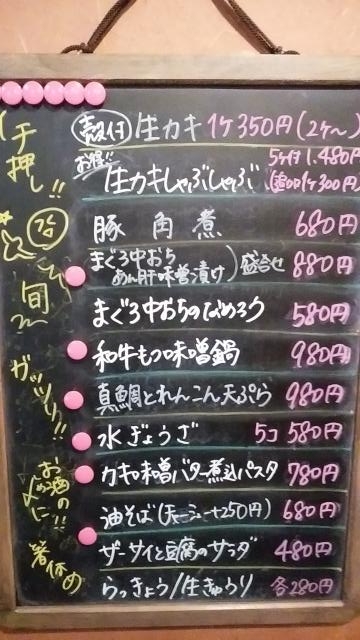 イチ押し!!
殻付 生カキ 1ケ 350円(2ケ〜)
お得!! 生カキしゃぶしゃぶ 5ケ付 1,480円
(追加1ケ300円)
豚角煮 680円
まぐろ中おち
あん肝味噌漬け)盛合せ 880円
旬
まぐろ中おちのなめろう 580円
和牛もつ味噌鍋 980円
ガッツリ!!
真鯛とれんこん天ぷら 980円
水ぎょうざ 5コ 580円
カキ味噌バター煮込パスタ 780円
お酒の〆に!!
油そば(チャーシュー+250円) 680円
ザーサイと豆腐のサラダ 480円
箸休め
らっきょう/生きゅうり 各280円